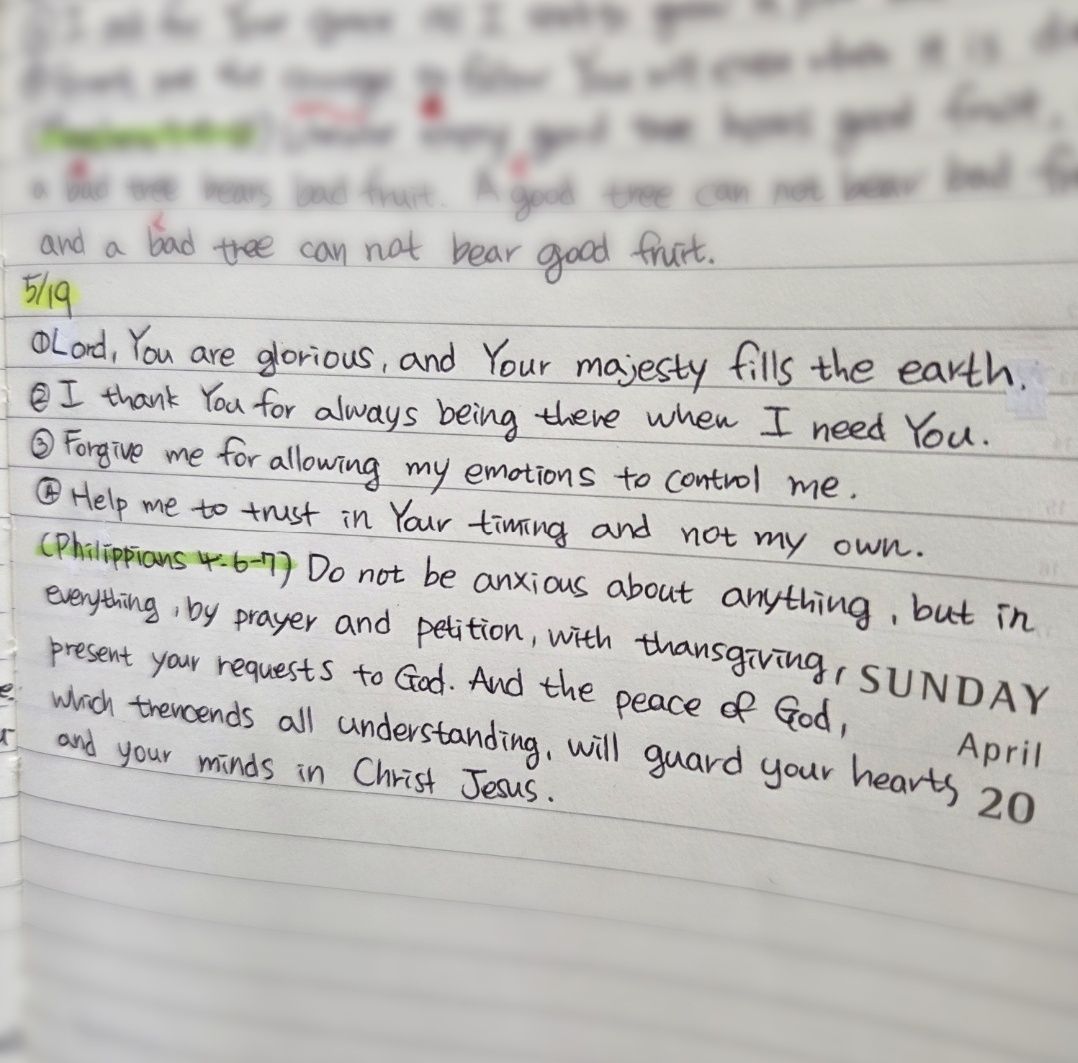 a bad tree bears bad fruit. A good tree can not bear bad
and a bad tree can not bear good fruit.
5/19
①Lord, You are glorious, and Your majesty fills the earth.
② I thank You for always being there when I need You.
③ Forgive me for allowing my emotions to control me.
④ Help me to trust in Your timing and not my own.
(Philippians 4:6-7) Do not be anxious about anything, but in
everything, by prayer and petition, with thansgiving,
present your requests to God. And the peace of God,
which trencends all understanding, will guard your hearts
and your minds in Christ Jesus.
SUNDAY
April
20